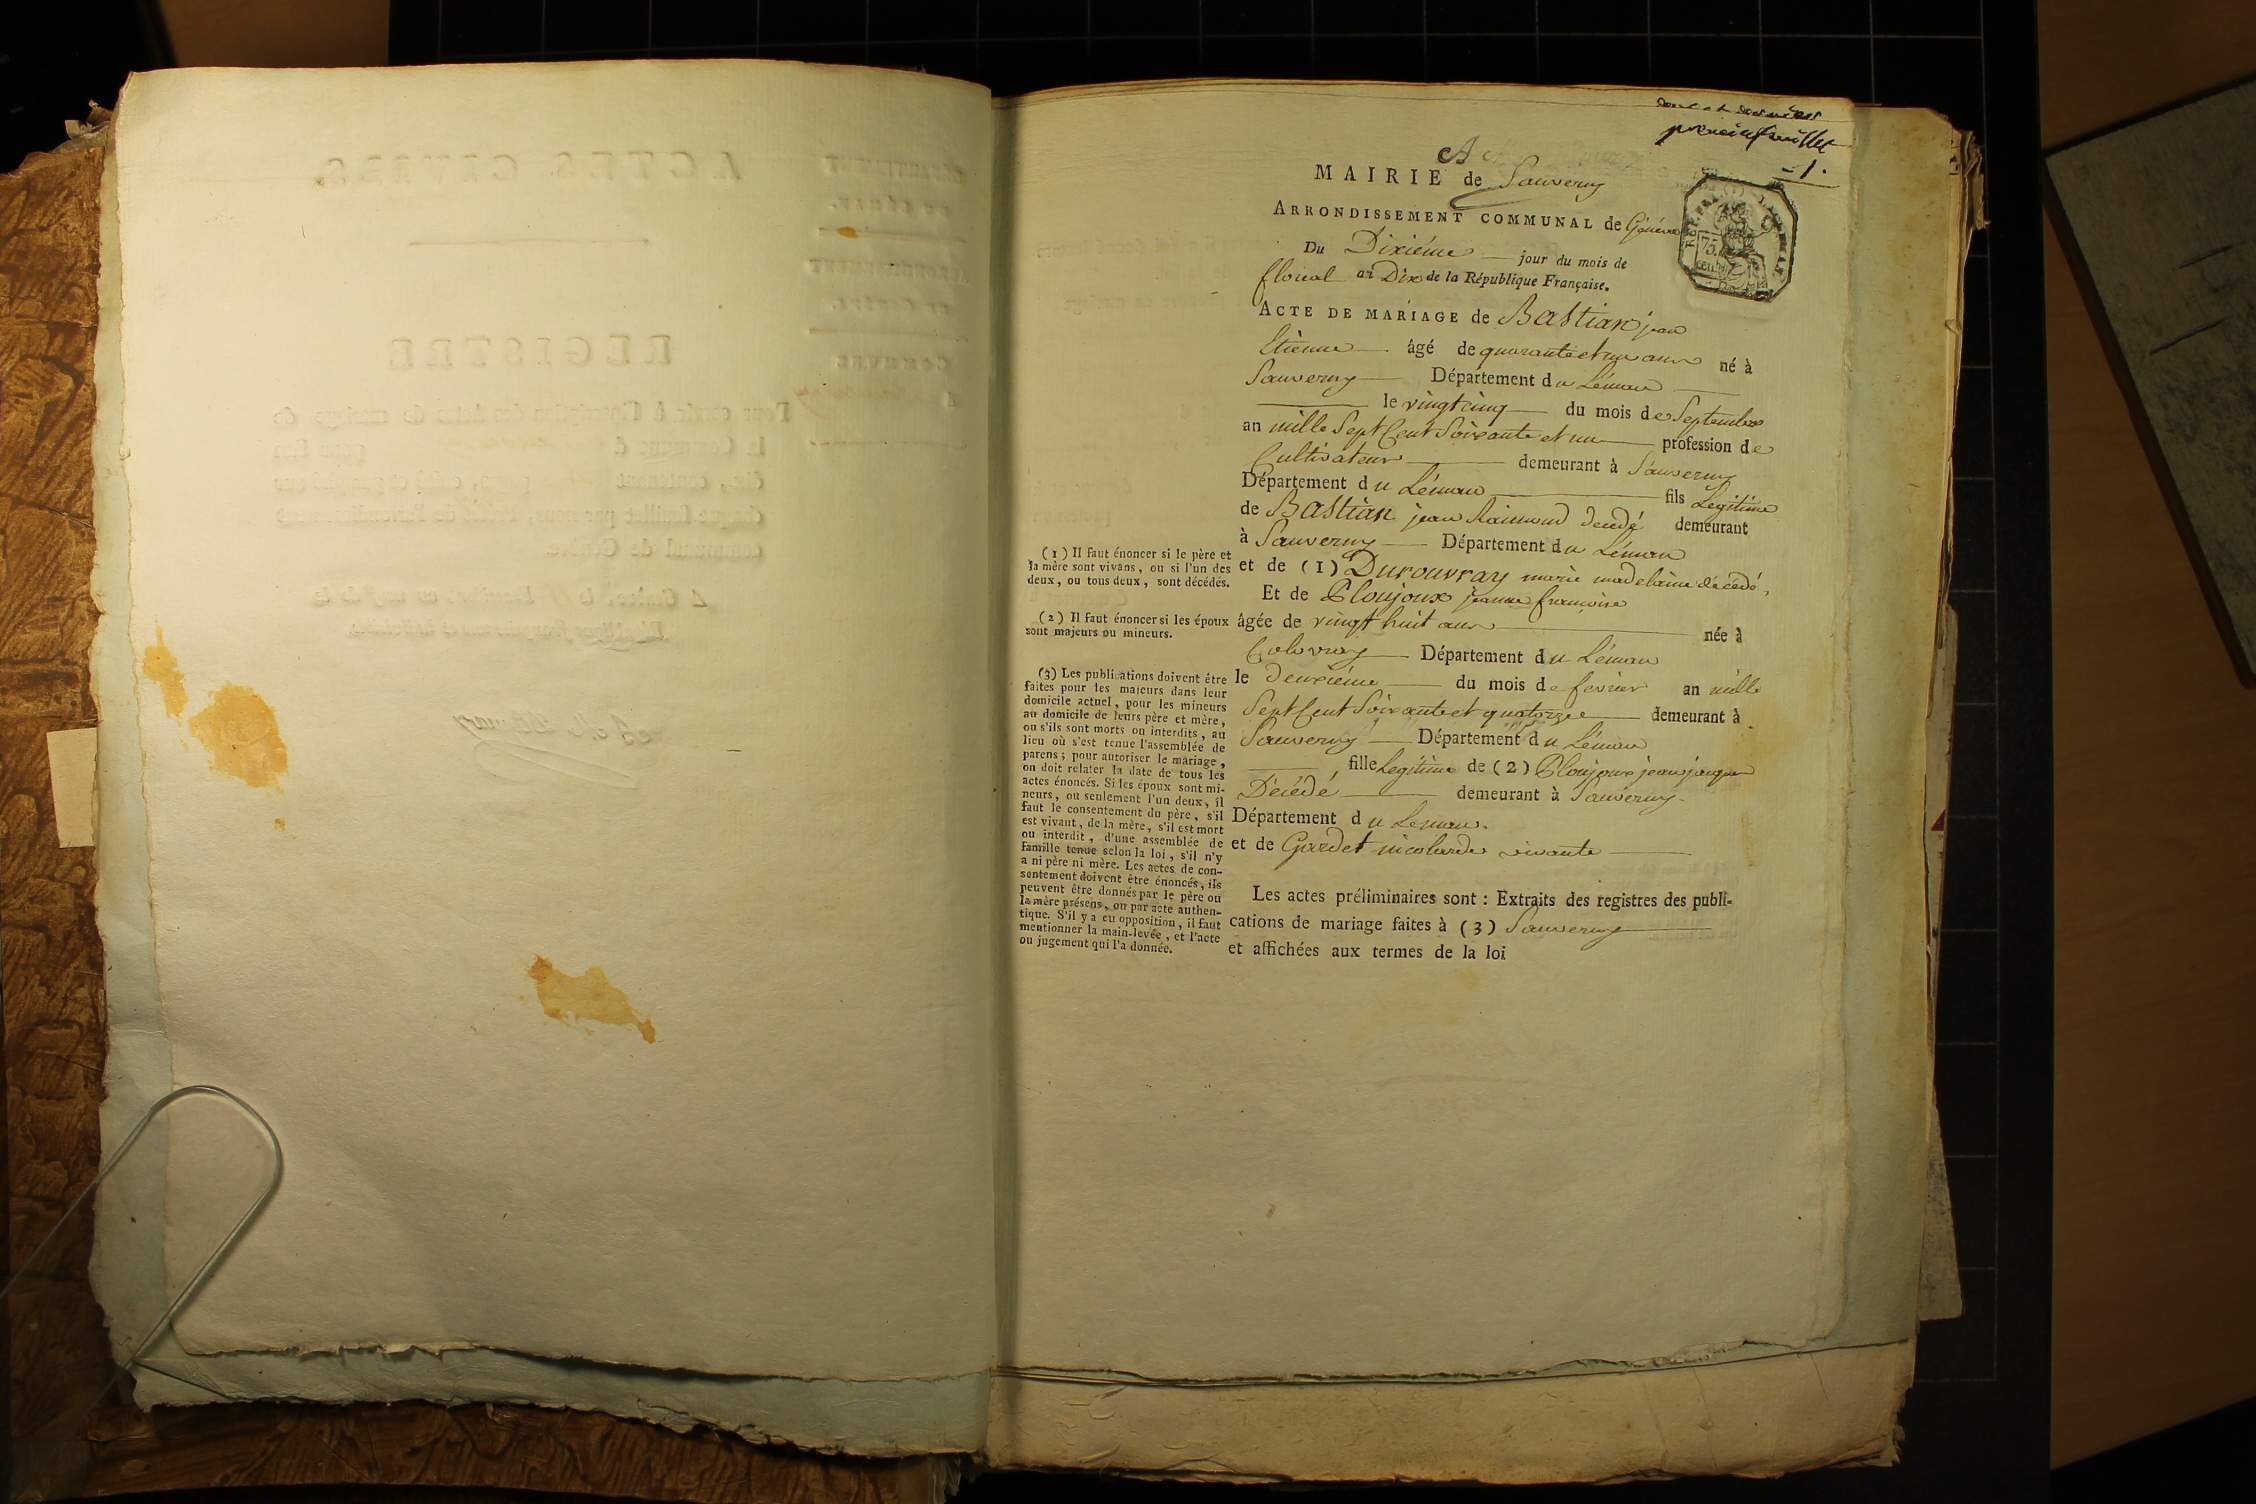 premier feuillet
1.
MAIRIE de Sauverny
ARRONDISSEMENT COMMUNAL de Genève
Du Dixiéme jour du mois de
floreal an Dix de la République Française.
ACTE DE MARIAGE de Bastian jean
Etienne âgé de quarante et un ans né à
Sauverny Département du Léman
le vingt cinq du mois de Septembre
an mille Sept Cent Soixante et un profession de
Cultivateur demeurant à Sauverny
Département du Léman fils Legitime
de Bastian jean Raimond decedé demeurant
à Sauverny Département du Léman
et de (1) Durouvray marie madelaine décédé,
Et de Ploujoux jeanne françoise
âgée de vingt huit ans née à
Colovray Département du Léman
le deuxiéme du mois de fevrier an mille
Sept Cent Soixante et quatorze demeurant à
Sauverny Département du Léman
fille Legitime de (2) Ploujoux jean jaques
Décédé demeurant à Sauverny.
Département du Leman.
et de Gardet nicolarde vivante
Les actes préliminaires sont : Extraits des registres des publi-
cations de mariage faites à (3) Sauverny
et affichées aux termes de la loi
(1) Il faut énoncer si le père et
la mère sont vivans, ou si l'un des
deux, ou tous deux, sont décédés.
(2) Il faut énoncer si les époux
sont majeurs ou mineurs.
(3) Les publications doivent être
faites pour les majeurs dans leur
domicile actuel, pour les mineurs
au domicile de leurs père et mère,
ou s'ils sont morts ou interdits, au
lieu où s'est tenue l'assemblée de
parens; pour autoriser le mariage,
on doit relater la date de tous les
actes énoncés. Si les époux sont mi-
neurs, ou seulement l'un deux, il
faut le consentement du père, s'il
est vivant, de la mère, s'il est mort
ou interdit, d'une assemblée de
famille tenue selon la loi, s'il n'y
a ni père ni mère. Les actes de con-
sentement doivent être énoncés, ils
peuvent être donnés par le père ou
la mère présens, ou par acte authen-
tique. S'il y a eu opposition, il faut
mentionner la main-levée, et l'acte
ou jugement qui l'a donnée.